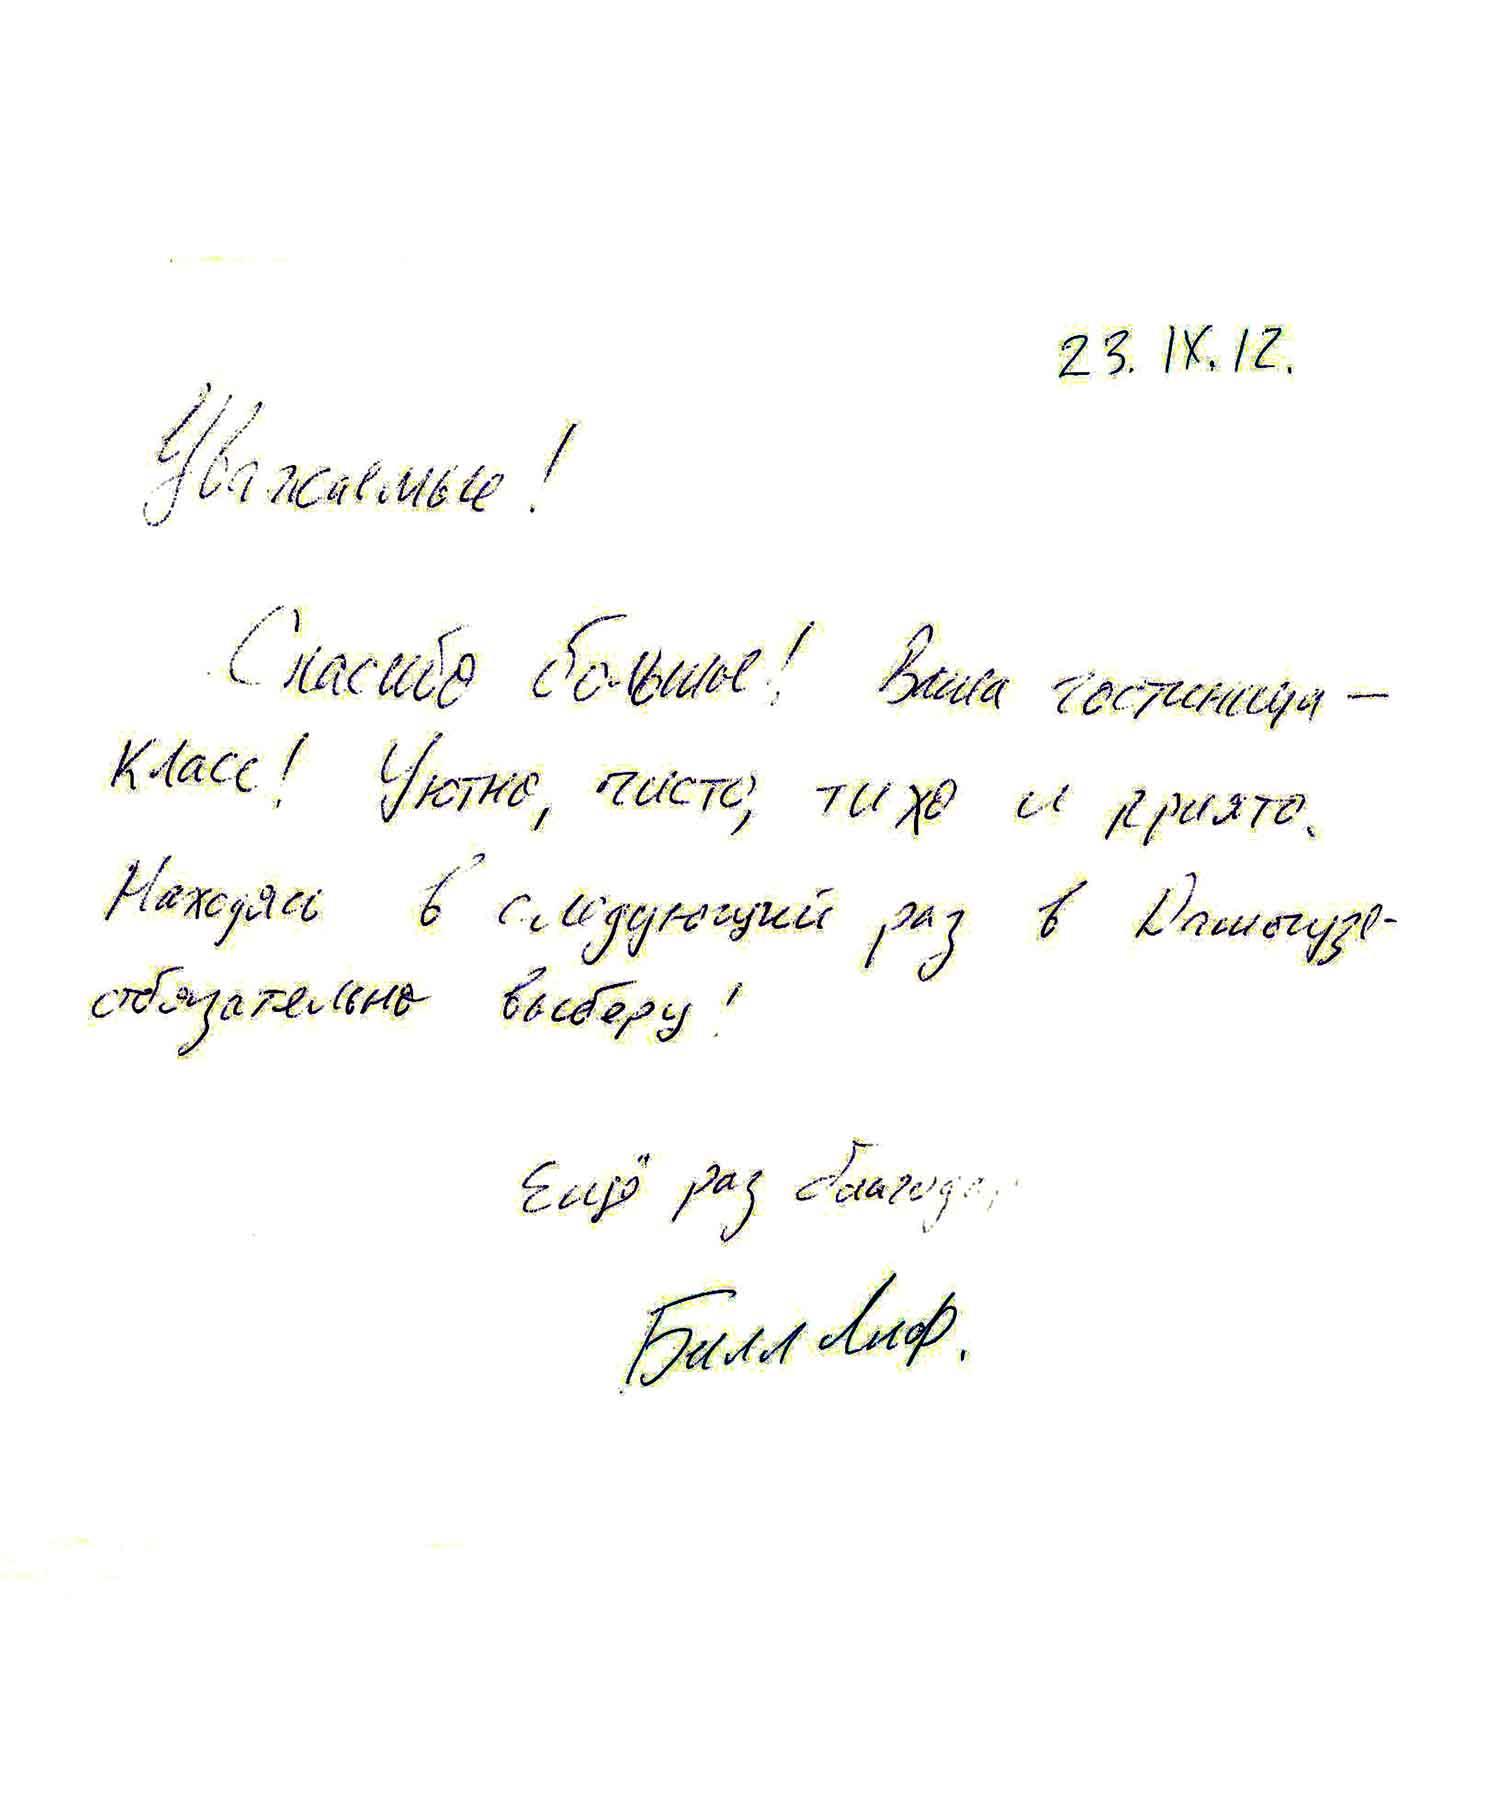 23. IX. 12.
Уважаемые!
Спасибо большое! Ваша гостиница —
класс! Уютно, чисто, тихо и приято.
Находясь в следующий раз в Дашогузе-
обязательно выберу!
Ещё раз благодар
Билл Лиф.